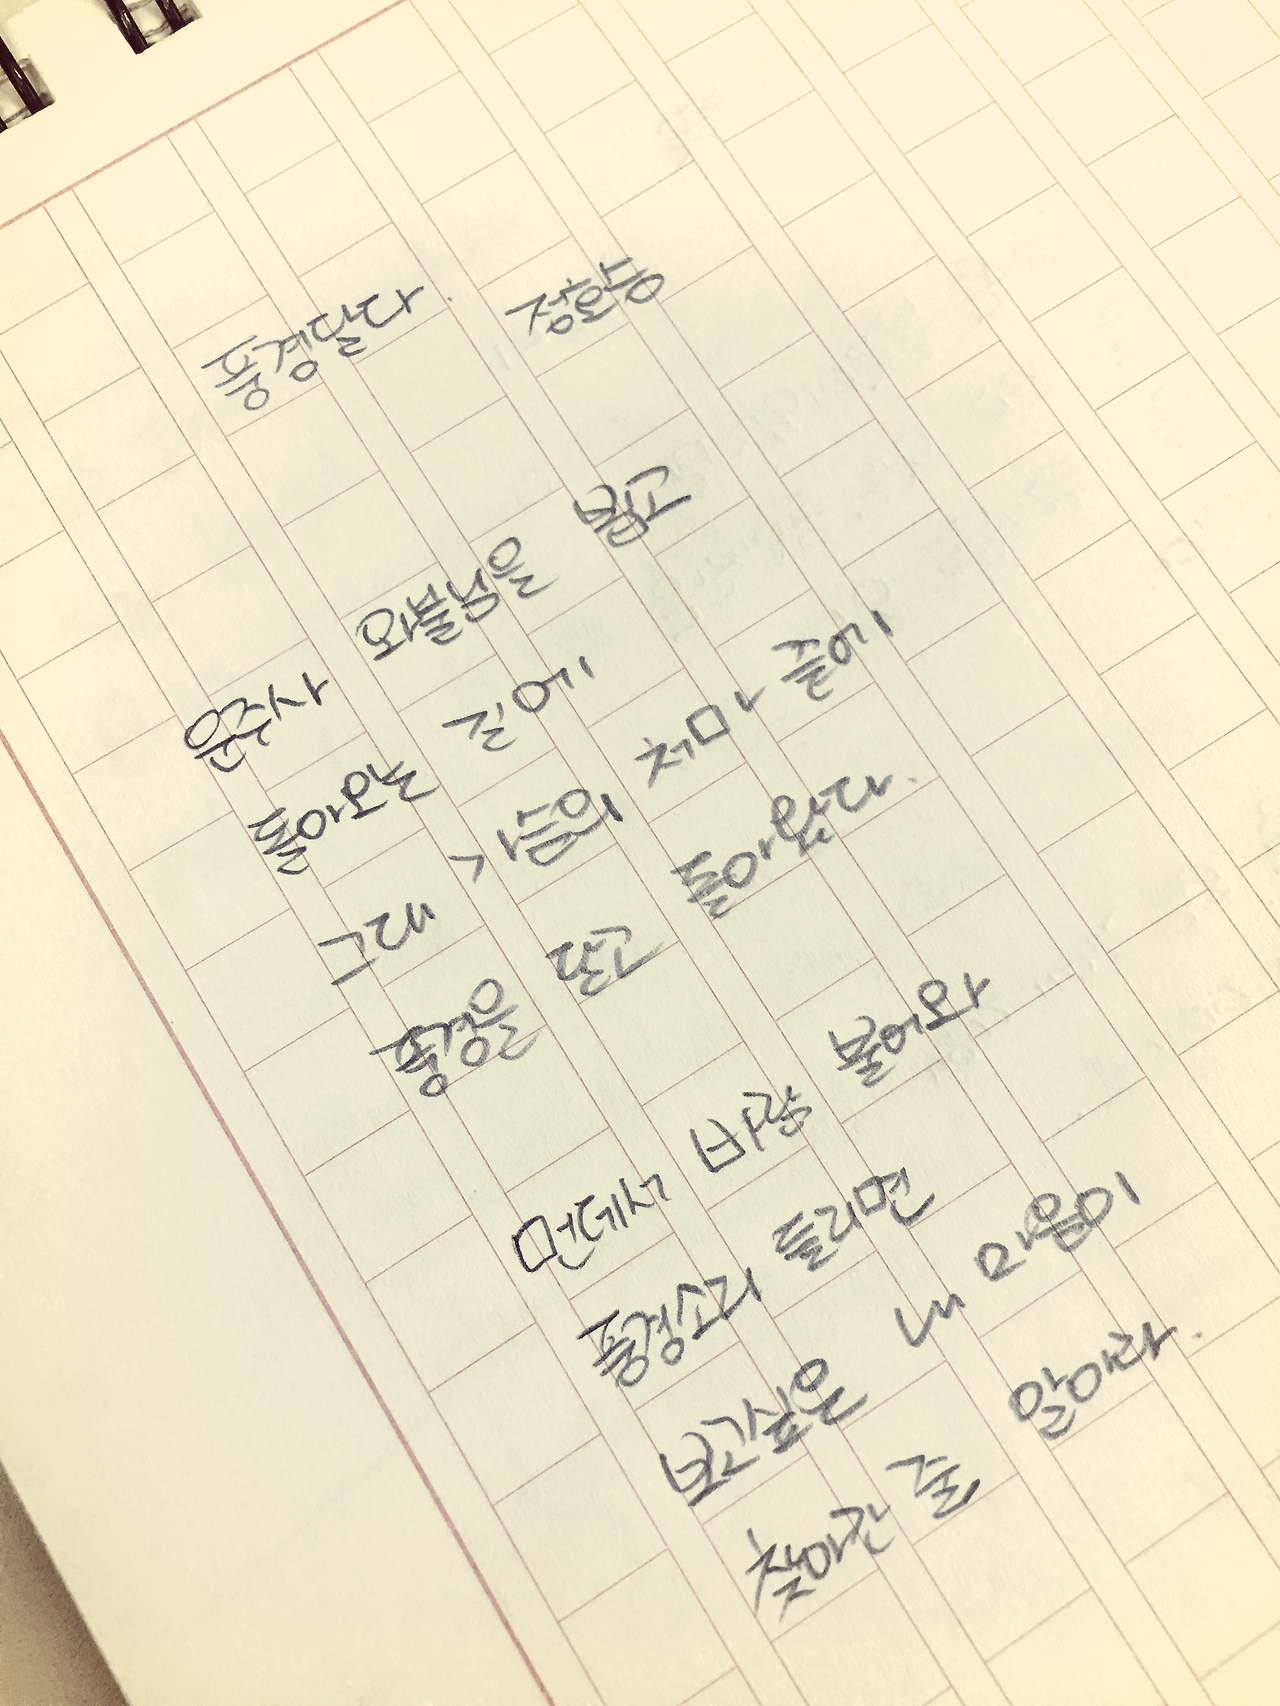 풍경달다. 정호승
운주사 와불님을 뵙고
돌아오는 길에
그대 가슴의 처마 끝에
풍경을 달고 돌아왔다.
먼데서 바람 불어와
풍경소리 들리면
보고싶은 내 마음이
찾아간 줄 알아라.